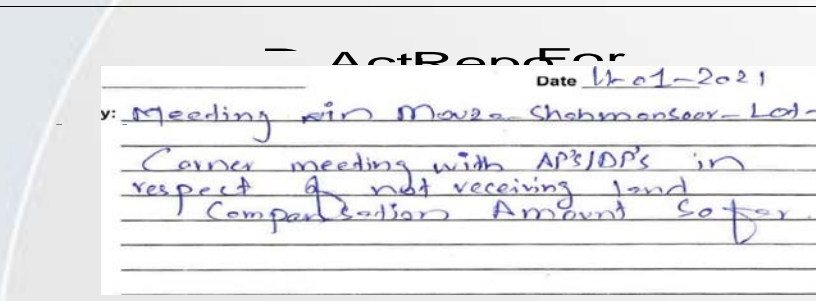 Date 11-01-2021
y: Meeting in Mouza Shahmansoor- Lot-
Corner meeting with AP's/DP's in
respect of not receiving land
Compensation Amount So far.